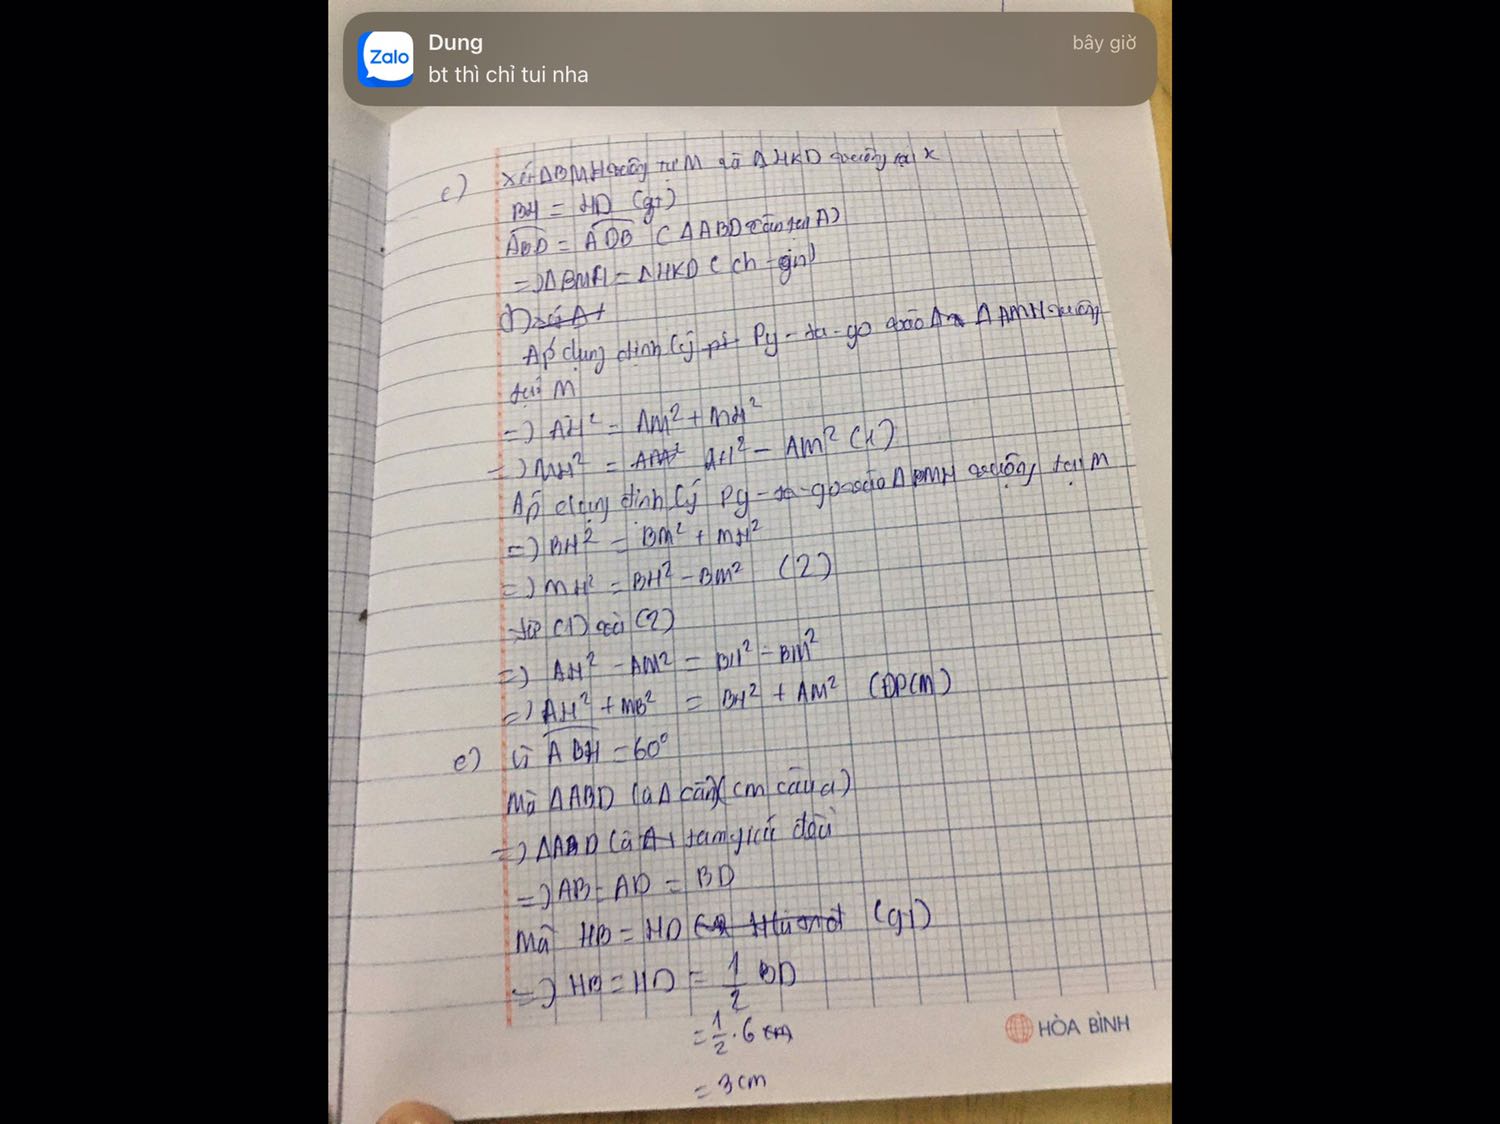 Zalo
Dung
bây giờ
bt thì chỉ tui nha
c) Xét ΔBMH vuông tại M và ΔHKD vuông tại K
BH = HD (gt)
ABD = ADB (ΔABD cân tại A)
=) ΔBMH = ΔHKD (ch - gn)
d) xét Δ
Áp dụng định lý Py-ta-go vào Δ AMH vuông
tại M
=) AH² = AM² + MH²
=) MH² = AH² - AM² (1)
Áp dụng định lý Py-ta-go vào ΔBMH vuông tại M
=) BH² = BM² + MH²
=) MH² = BH² - BM² (2)
từ (1) và (2)
=) AH² - AM² = BH² - BM²
=) AH² + MB² = BH² + AM² (ĐPCM)
e) Vì ABH = 60°
Mà ΔABD là Δ cân (cm câu a)
=) ΔABD là tam giác đều
=) AB = AD = BD
Mà HB = HD (gt)
=) HB = HD = 1/2 BD
= 1/2 . 6 cm
= 3 cm
HÒA BÌNH